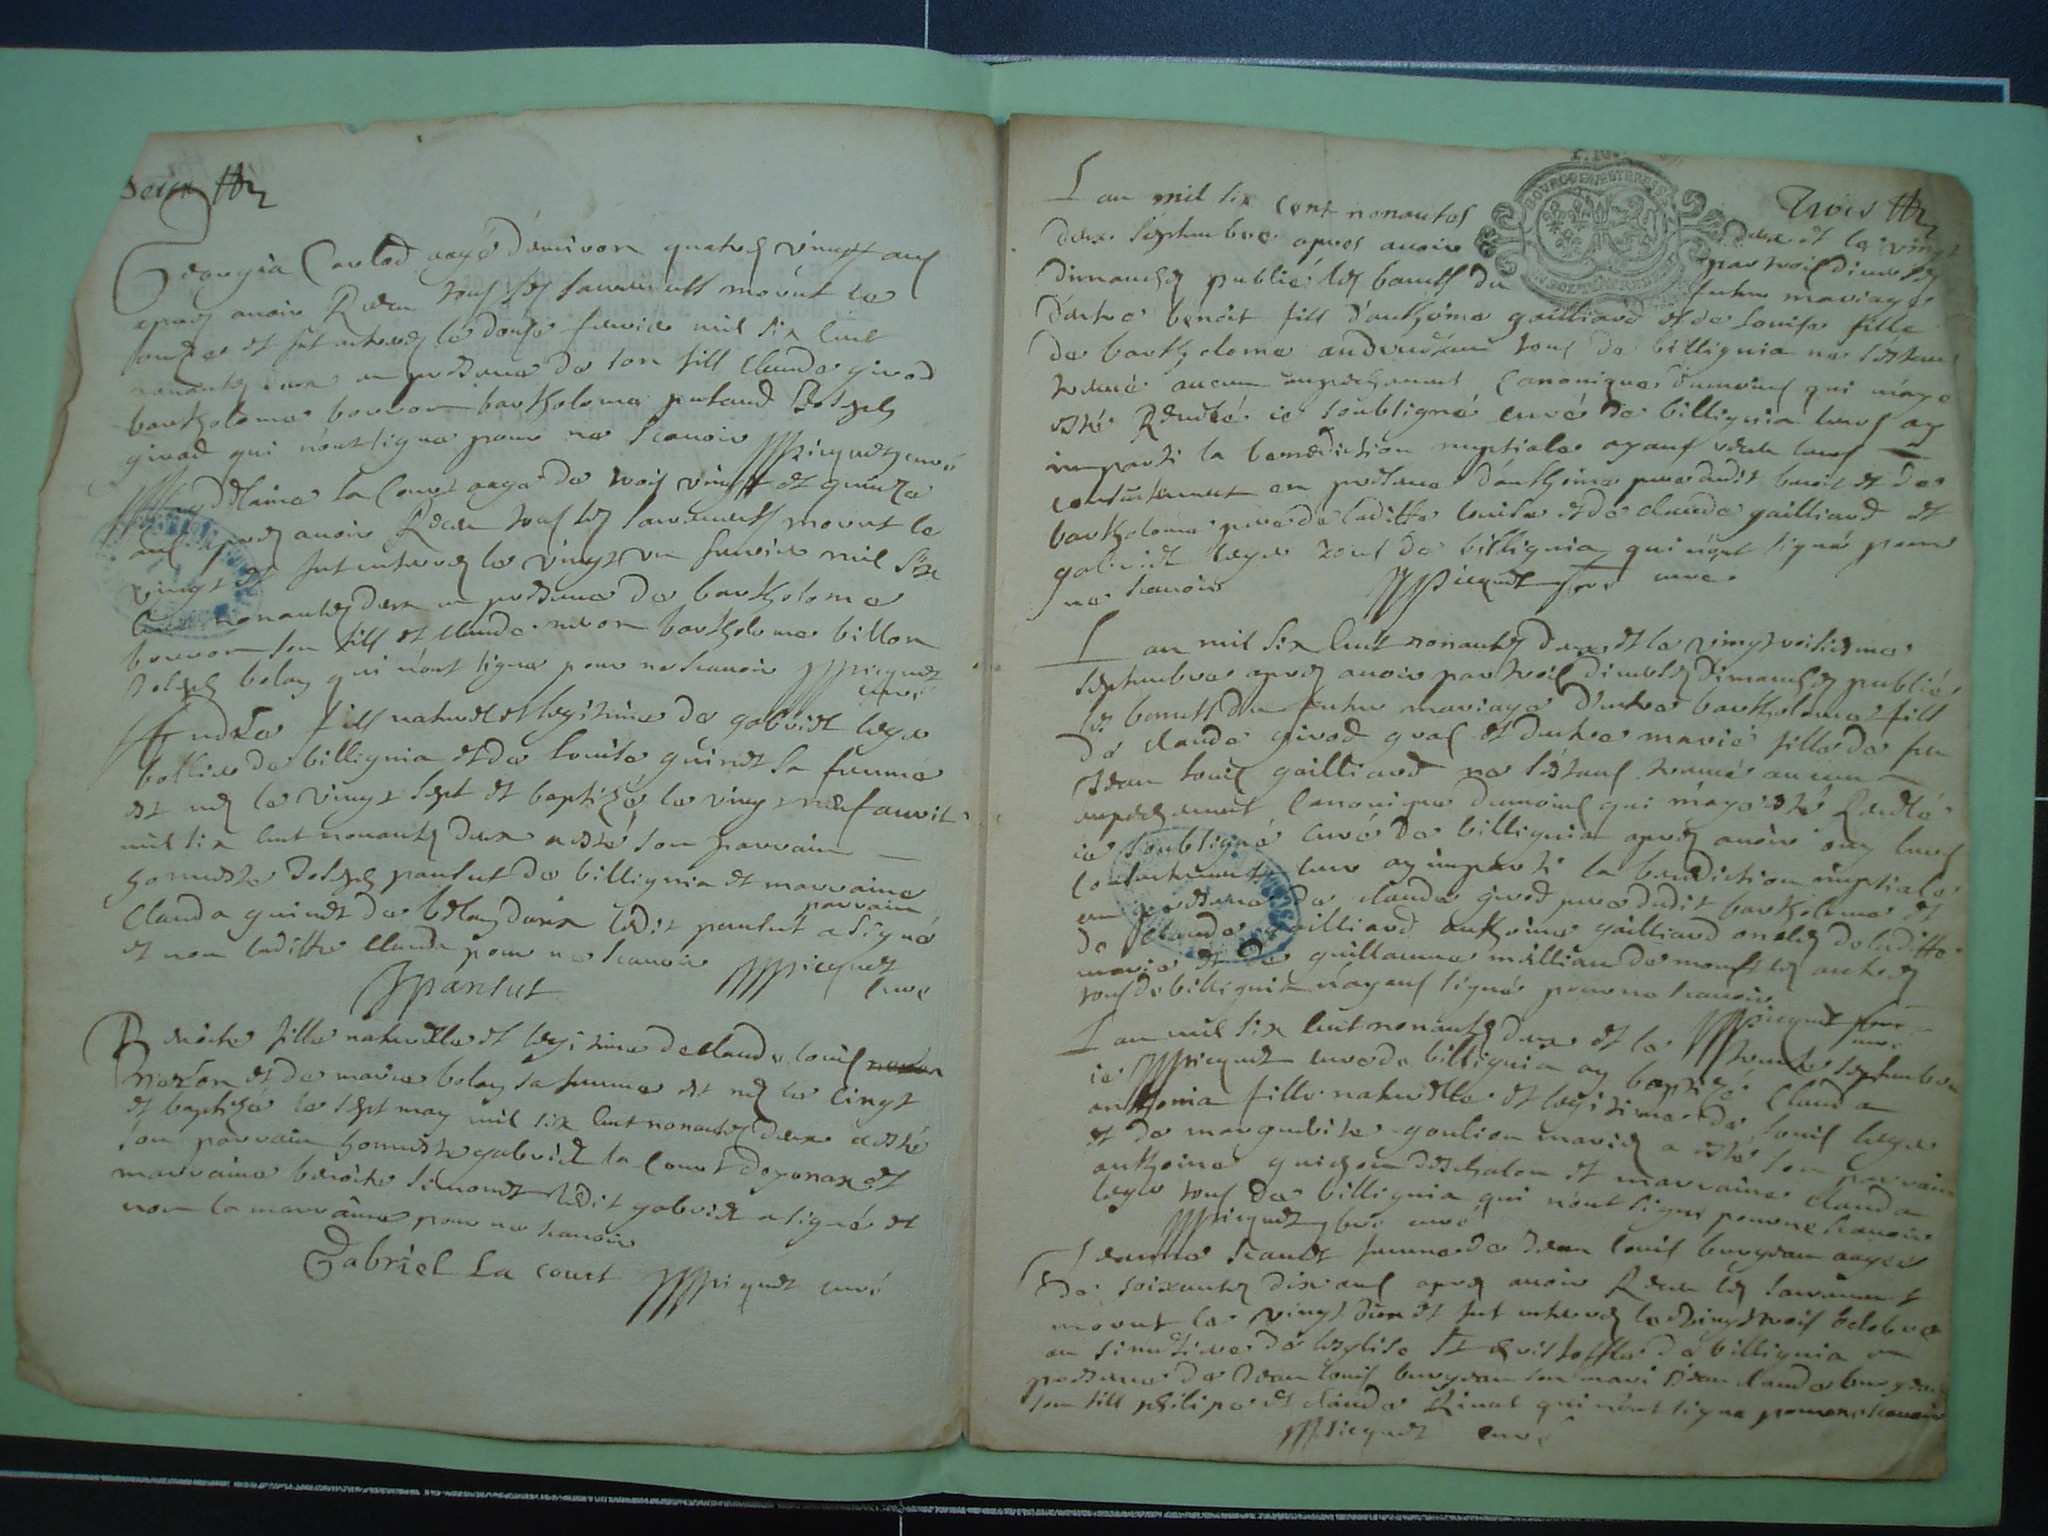 Deux
Georgia Carlod aagé d'environ quatre vingt ans
apres avoir Receu tous les sacrements mourut le
onze et fut enterré le douze fevrier mil six cent
nonante deux en presence de son fill Claude girod
bartholome borron bartholome putaud Joseph
girod qui n'ont signe pour ne scavoir Picquet curé
Magdelaine la Court aagé de trois vingt et quinze
ans apres avoir Receu tous les sacrements mourut le
vingt et fut enterré le vingt un fevrier mil six
cent nonante deux en presence de bartholome
borron son fill et Claude nivon bartholome billon
Joseph belay qui n'ont signe pour ne scavoir Picquet
curé
Andréa fill naturel et legitime de gabriel leger
de billignia et de louise guinet sa femme
est né le vingt sept et baptizé le vingt neuf avril
mil six cent nonante deux a esté son parrain
honneste Joseph pansut de billignia et marraine
Clauda guinet de ledit pansut parrain a signé
et non laditte Clauda pour ne scavoir Picquet
curé
J pansut
Benoite fille naturelle et legitime de claude louis
et de marie belay sa femme est né le cinqt
et baptizé le sept may mil six cent nonante deux a esté
son parrain honneste gabriel la Court doyonax et
marraine benoite simonet ledit gabriel a signé et
non la marraine pour ne scavoir
Gabriel La court Picquet curé
Trois
L'an mil six cent nonantes deux et le vingt
deux septembre apres avoir par trois divers
dimanches publié les bancts du futur mariage
d'entre benoit fill d'anthoine gailliard et de louise fille
de bartholome tous de billignia ne s'estant
treuvé aucun empeschement Canonique dumoins qui m'aye
esté Revelé ie soubsigné curé de billignia leurs ay
imparti la benediction nuptiale ayant receu leurs
consentement en presence d'anthoine pere dudit benoit et de
bartholome pere de laditte louise et de claude gailliard et
gabriel leger tous de billignia qui n'ont signé pour
ne scavoir Picquet curé
L'an mil six cent nonante deux et le vingt
septembre apres avoir par trois divers dimanches publié
les bancts du futur mariage d'entre bartholome fill
de claude girod et d'entre marie fille de feu
Jean louis gailliard ne s'estant treuvé aucun
empeschement Canonique dumoins qui m'aye esté Revelé
ie soubsigné curé de billignia apres avoir ouy leurs
consentement leur ay imparti la benediction nuptiale
en presence de claude girod pere dudit bartholome et
de claude gailliard anthoine gailliard oncles de laditte
marie et de guillaume millian les autres
tous de billignia n'ayant signé pour ne scavoir
Picquet curé
L'an mil six cent nonante deux et le trente septembre
ie Picquet curé de billignia ay baptizé Clauda
anthonia fille naturelle et legitime de louis leger
et de marguerite goulion mariés a esté son parrain
anthoine et marraine Clauda
leger tous de billignia qui n'ont signé pour ne scavoir
Picquet curé
Jeanne femme de Jean louis burgeau aagée
de soixante dix ans apres avoir Receu les sacrement
mourut le vingt deux et fut enterrée le vingt trois octobre
au simetiere de leglise St Christofle de billignia en
presence de Jean louis burgeau son mari Jean claude burgeau
son fill philipe et claude qui n'ont signe pour ne scavoir
Picquet curé